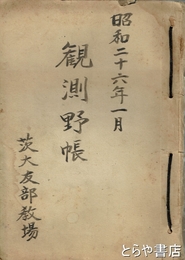 昭和二十六年一月
観測野帳
茨大友部教場
古書
とらや書店